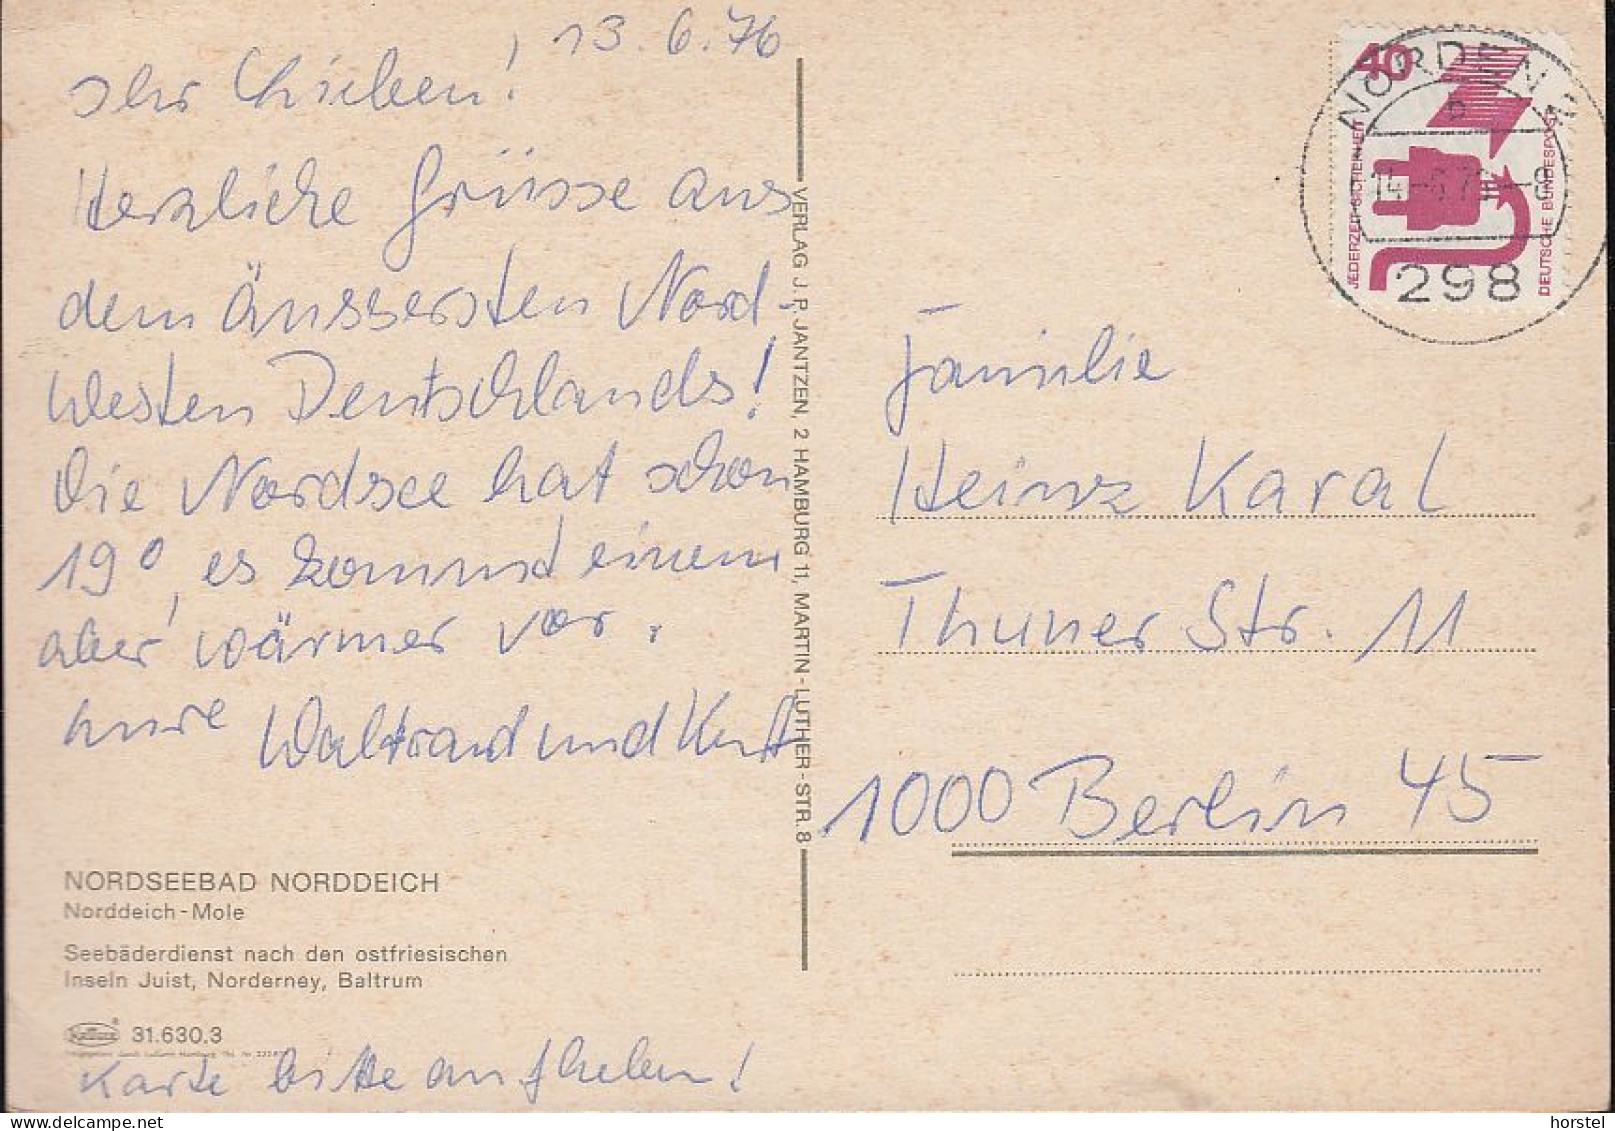 13.6.76
Ihr Lieben!
Herzliche Grüsse aus
dem äussersten Nord-
westen Deutschlands!
Die Nordsee hat schon
19°, es kommd einem
aber wärmer vor.
Eure Waltraud und Kurt
NORDSEEBAD NORDDEICH
Norddeich-Mole
Seebäderdienst nach den ostfriesischen
Inseln Juist, Norderney, Baltrum
31.630.3
Karte bitte aufheben!
VERLAG J. P. JANTZEN, 2 HAMBURG 11, MARTIN-LUTHER-STR. 8
40
JEDERZEIT SICHERHEIT
DEUTSCHE BUNDESPOST
NORDEN
298
Familie
Heinz Karal
Thuner Str. 11
1000 Berlin 45
horstel